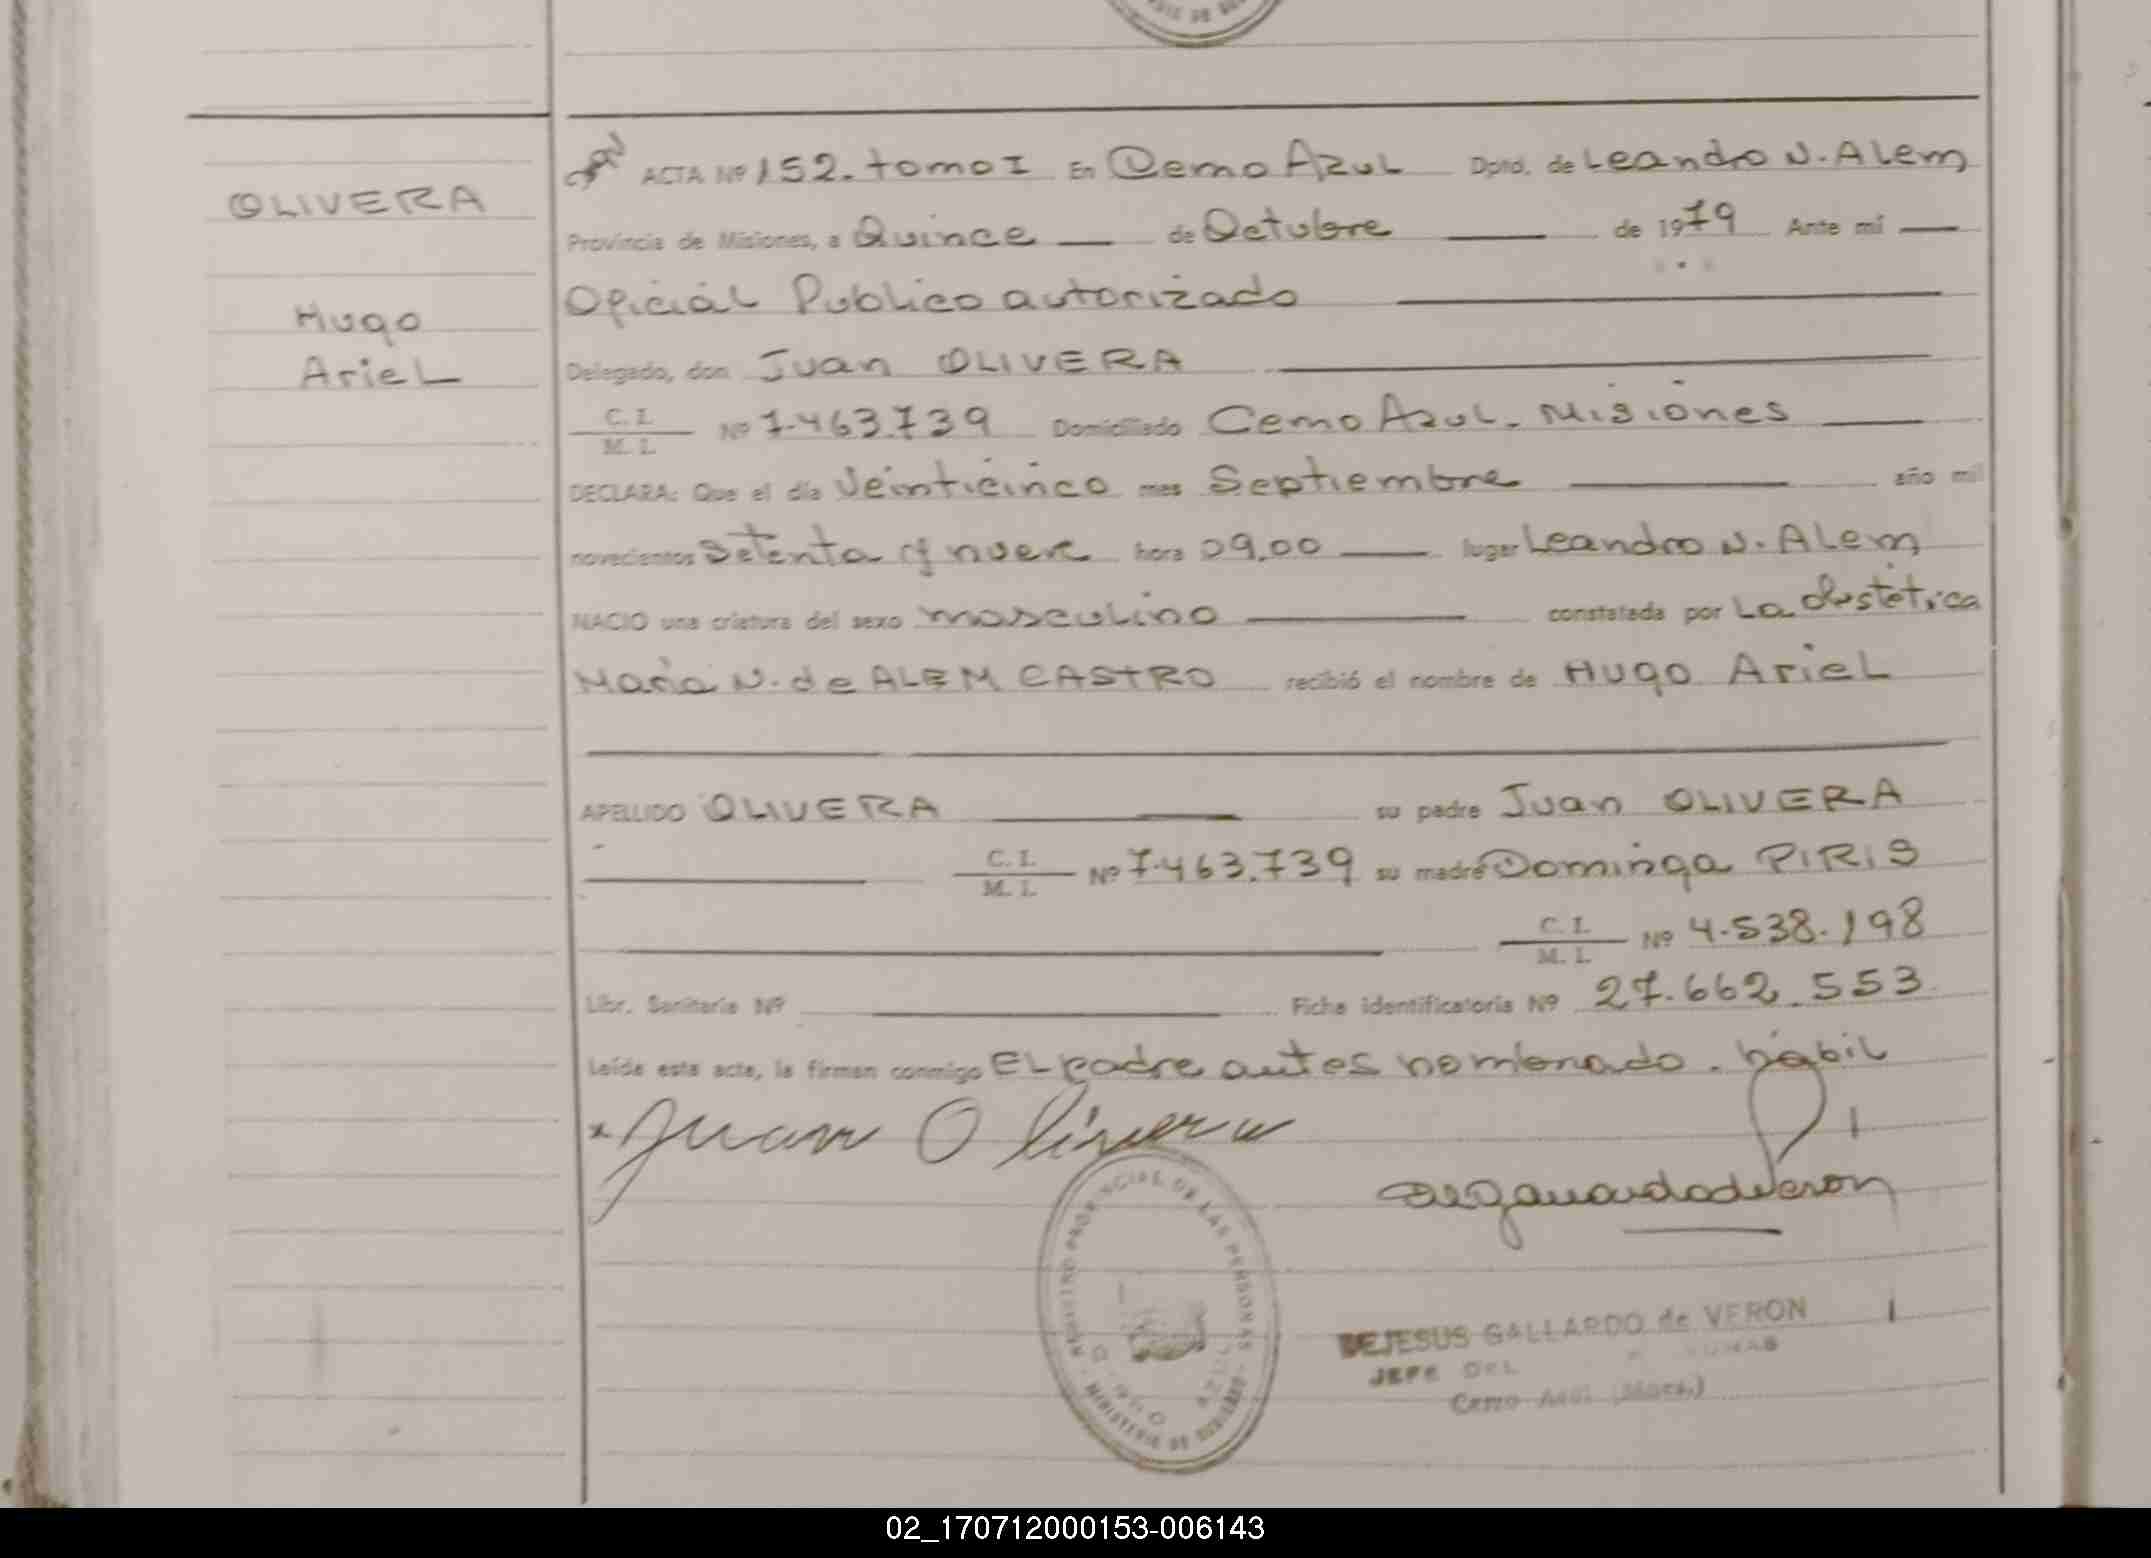 OLIVERA
Hugo
Ariel
ACTA Nº 152. tomo I En Cerro Azul Dpto. de Leandro N. Alem
Provincia de Misiones, a Quince de Octubre de 1979 Ante mí
Oficial Publico autorizado
Delegado, don Juan OLIVERA
C. I.
M. I.
Nº 7.463.739 Domiciliado Cerro Azul. Misiones
DECLARA: Que el día Veinticinco mes Septiembre año mil
novecientos setenta y nueve hora 09.00 lugar Leandro N. Alem
NACIO una criatura del sexo masculino constatada por La Obstétrica
Maria N. de ALEM CASTRO recibió el nombre de Hugo Ariel
APELLIDO OLIVERA su padre Juan OLIVERA
C. I.
M. I.
Nº 7.463.739 su madre Dominga PIRIS
C. I.
M. I.
Nº 4.538.198
Libr. Sanitaria Nº Ficha identificatoria Nº 27.662.553
Leída esta acta, la firman conmigo El padre antes nombrado. hábil
Juan Olivera
REGISTRO PROVINCIAL DE LAS PERSONAS
MINISTERIO DE GOBIERNO
DEJESUS GALLARDO de VERON
JEFE DEL
Cerro Azul (Mnes.)
02_170712000153-006143